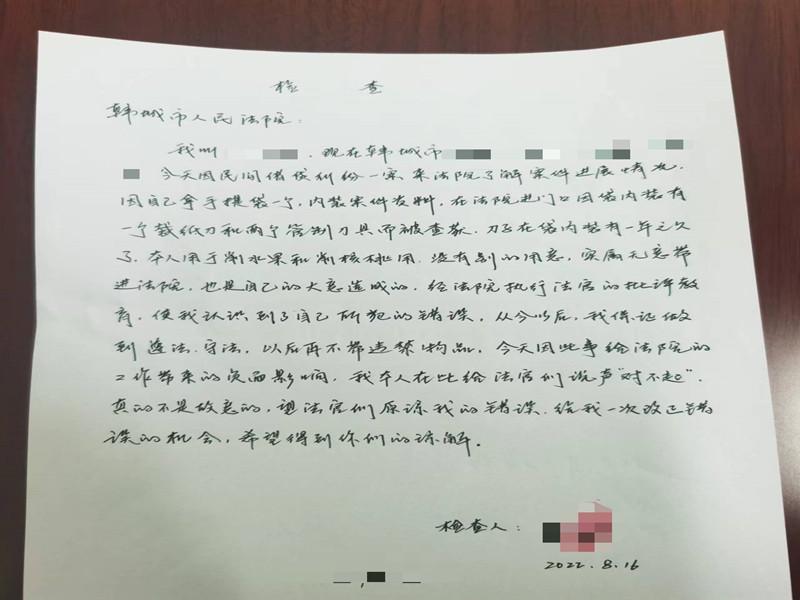 检 查
韩城市人民法院：
我叫 ，现在韩城市
今天因民间借贷纠纷一案来法院了解案件进展情况，
因自己拿手提袋一个，内装案件资料，在法院进门口因袋内装有
一个裁纸刀和两个管制刀具而被查获。刀子在袋内装有一年之久
了，本人用于削水果和削核桃用，没有别的用意，实属无意带
进法院，也是自己的大意造成的，经法院执行法官的批评教
育，使我认识到了自己所犯的错误，从今以后，我保证做
到遵法、守法，以后再不带违禁物品，今天因此事给法院的
工作带来的负面影响，我本人在此给法官们说声“对不起”。
真的不是故意的，望法官们原谅我的错误，给我一次改正错
误的机会，希望得到你们的谅解。
检查人：
2022.8.16